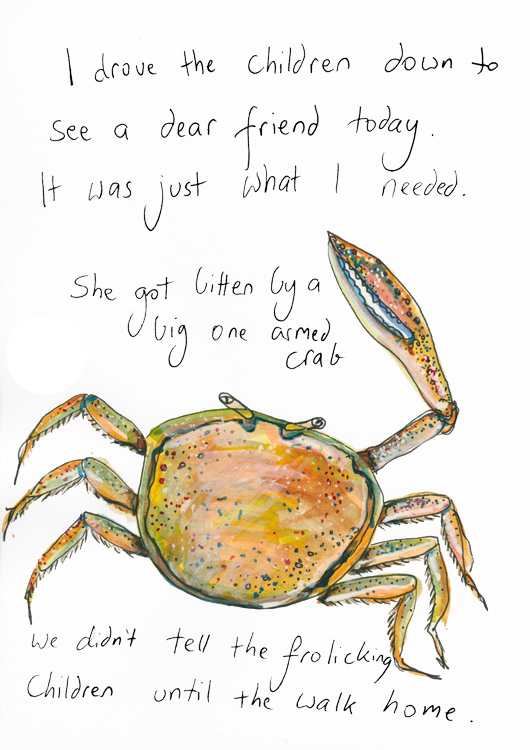 I drove the children down to
see a dear friend today.
It was just what I needed.
She got bitten by a
big one armed
crab
we didn't tell the frolicking
Children until the walk home.